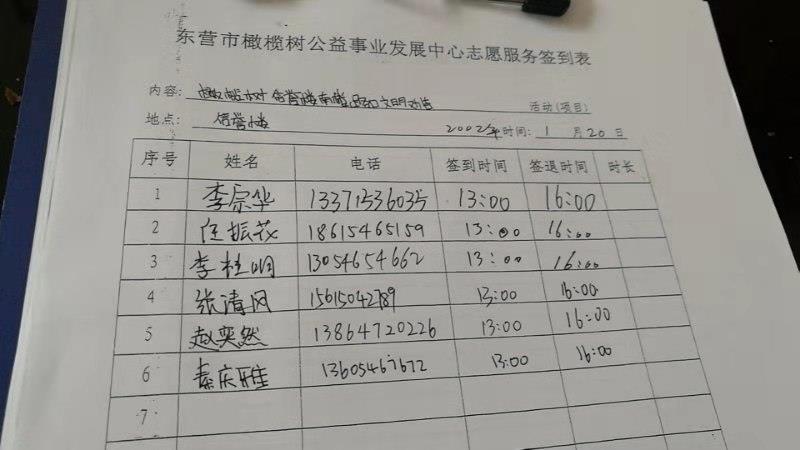 东营市橄榄树公益事业发展中心志愿服务签到表
内容: 活动(项目)
地点: 2002年 时间: 1 月 20 日
序号 姓名 电话 签到时间 签退时间 时长
1 李宗华 13371536035 13:00 16:00
2 任振花 18615465159 13:00 16:00
3 李桂明 13054654662 13:00 16:00
4 张清风 15615042789 13:00 16:00
5 赵奕然 13864720226 13:00 16:00
6 秦庆雅 13605467672 13:00 16:00
7